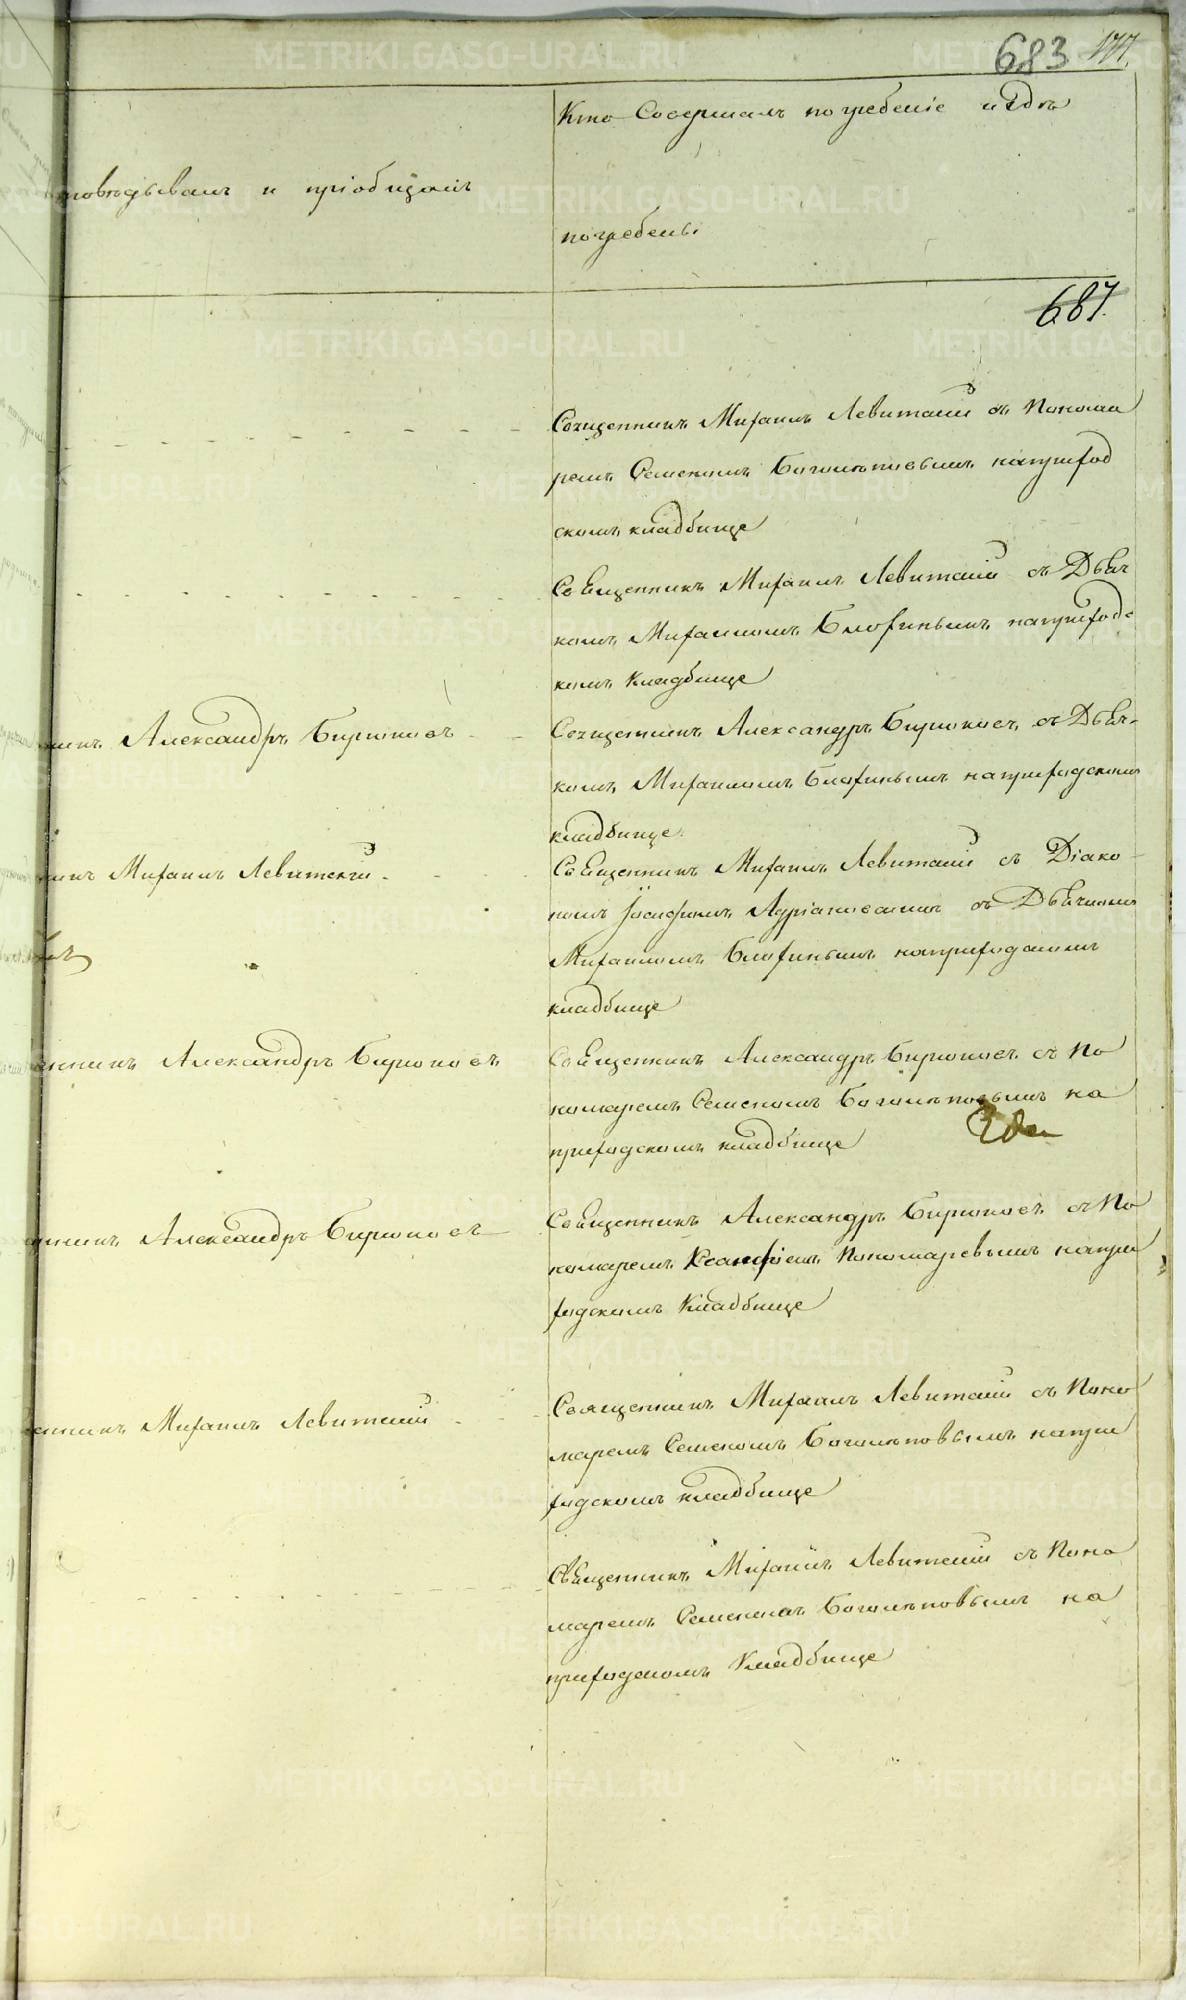 683
Кто Совершалъ погребеніе и гдѣ
повѣдывалъ и пріобщалъ
погребены
687
Священникъ Михаилъ Левитскій съ Понома
ремъ Семеномъ Боголѣповымъ на приход
скомъ кладбище
Священникъ Михаилъ Левитскій съ Дьяч
комъ Михаиломъ Блохинымъ на приходс
комъ кладбище
никъ Александръ Бирюковъ
Священникъ Александръ Бирюковъ съ Дьяч-
комъ Михаиломъ Блохинымъ на приходскомъ
кладбище
никъ Михаилъ Левитскій
Священникъ Михаилъ Левитскій съ Діако
номъ Адріановскимъ съ Дьячкомъ
Михаиломъ Блохинымъ на приходскомъ
кладбище
енникъ Александръ Бирюковъ
Священникъ Александръ Бирюковъ съ По
номаремъ Семеномъ Боголѣповымъ на
приходскомъ кладбище
нникъ Александръ Бирюковъ
Священникъ Александръ Бирюковъ съ По
номаремъ Ксанфіемъ Пономаревымъ на при
ходскомъ Кладбище
енникъ Михаилъ Левитскій
Священникъ Михаилъ Левитскій съ Поно
маремъ Семеномъ Боголѣповымъ на при
ходскомъ кладбище
Священникъ Михаилъ Левитскій съ Поно
маремъ Семеномъ Боголѣповымъ на
приходскомъ Кладбище
METRIKI.GASO-URAL.RU